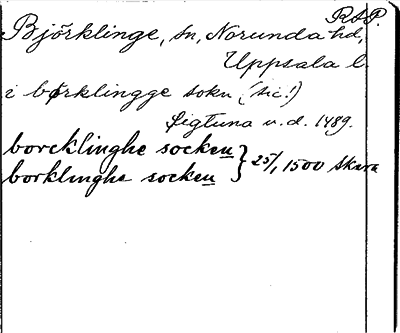 RAP.
Björklinge, sn, Norunda hd,
Uppsala l.
i børklingge sokn (sic!)
Sigtuna u.d. 1489.
borcklinghe socken } 25/1 1500 Skara
borklinghe socken